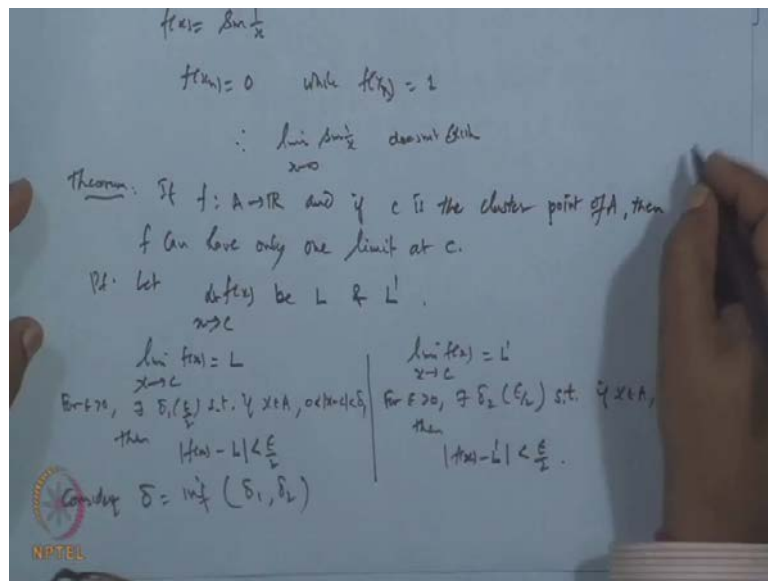 f(x) = Sin 1/x
f(xn) = 0 while f(xn) = 1
∴ lim x→0 Sin 1/x doesnot Exist
Theorem. If f: A→R and if c is the cluster point of A, then
f Can have only one limit at c.
Pf. Let lt f(x) x→c be L & L'.
lim x→c f(x) = L
For ε>0, ∃ δ1(ε/2) s.t. if x∈A, 0<|x-c|<δ1
then |f(x) - L| < ε/2
lim x→c f(x) = L'
For ε>0, ∃ δ2(ε/2) s.t. if x∈A,
then
|f(x) - L'| < ε/2.
Consider δ = inf (δ1, δ2)
NPTEL